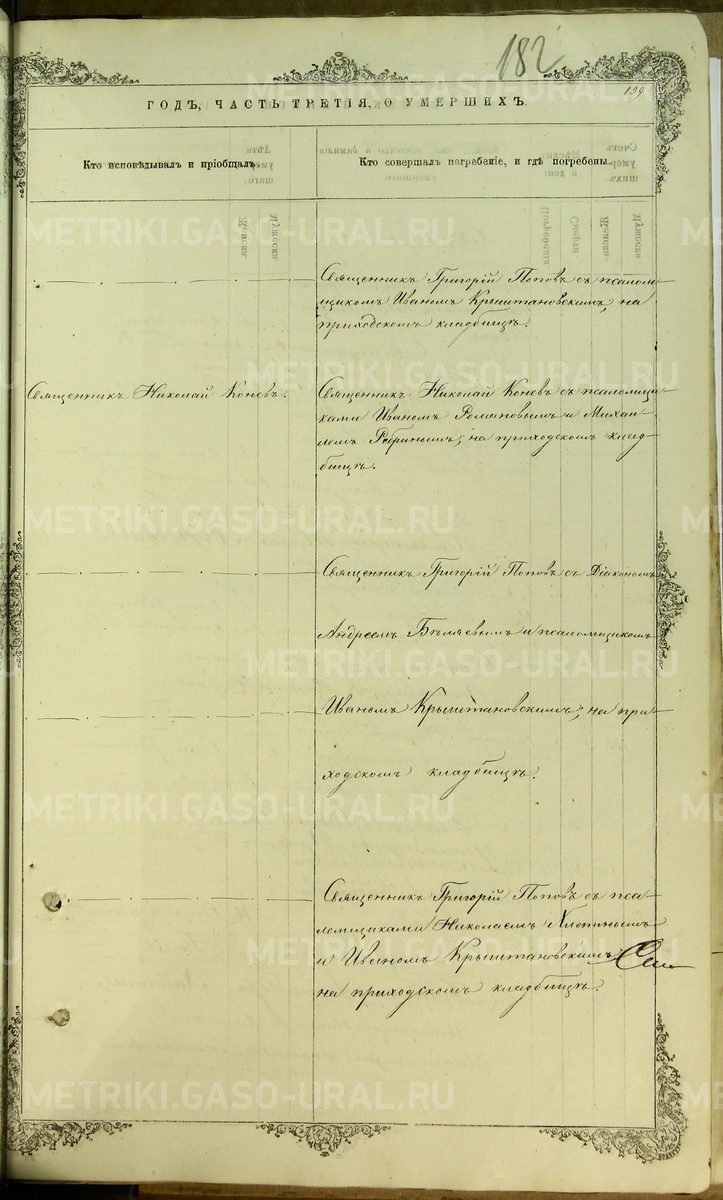 182
199
ГОДЪ, ЧАСТЬ ТРЕТІЯ, О УМЕРШИХЪ.
Кто исповѣдывалъ и пріобщалъ.
Кто совершалъ погребеніе, и гдѣ погребены.
Священникъ Григорій Поповъ съ псалом-
щикомъ Иваномъ Крыштановскимъ, на
приходскомъ кладбищѣ.
Священникъ Николай Коневъ.
Священникъ Николай Коневъ съ псаломщи-
ками Иваномъ Романовымъ и Михаи-
ломъ Рябинымъ, на приходскомъ клад-
бищѣ.
Священникъ Григорій Поповъ съ Діакономъ
Андреемъ Бѣляевымъ и псаломщикомъ
Иваномъ Крыштановскимъ, на при-
ходскомъ кладбищѣ.
Священникъ Григорій Поповъ съ пса-
ломщиками Николаемъ Хлопинымъ
и Иваномъ Крыштановскимъ
на приходскомъ кладбищѣ.
METRIKI.GASO-URAL.RU